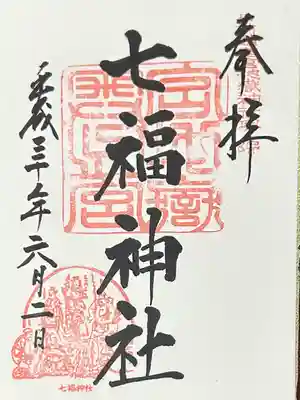 奉拝
七福神社
平成三十年六月二日
七福神社